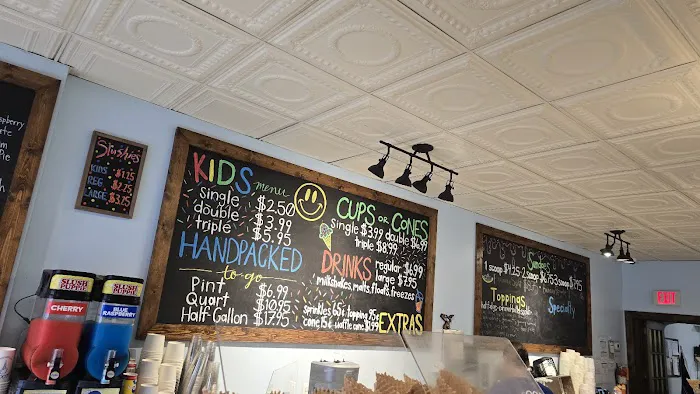 spberry
Slushies
KIDS $1.75
REG. $2.75
LARGE $3.75
KIDS menu
single $2.50
double
triple $5.95
HANDPACKED
to-go
Pint $6.99
Quart $10.95
Half Gallon $17.95
CUPS or CONES
single $3.99 double $6.99
triple $8.99
DRINKS regular $6.99
large $7.95
milkshakes, malts, floats, freezes
sprinkles 65¢ topping 95¢
cone 5¢ waffle cone $1.99
EXTRAS
Sundaes
Toppings
Specialty
EXIT
SLUSH PUPPIE
CHERRY
SLUSH PUPPIE
BLUE RASPBERRY